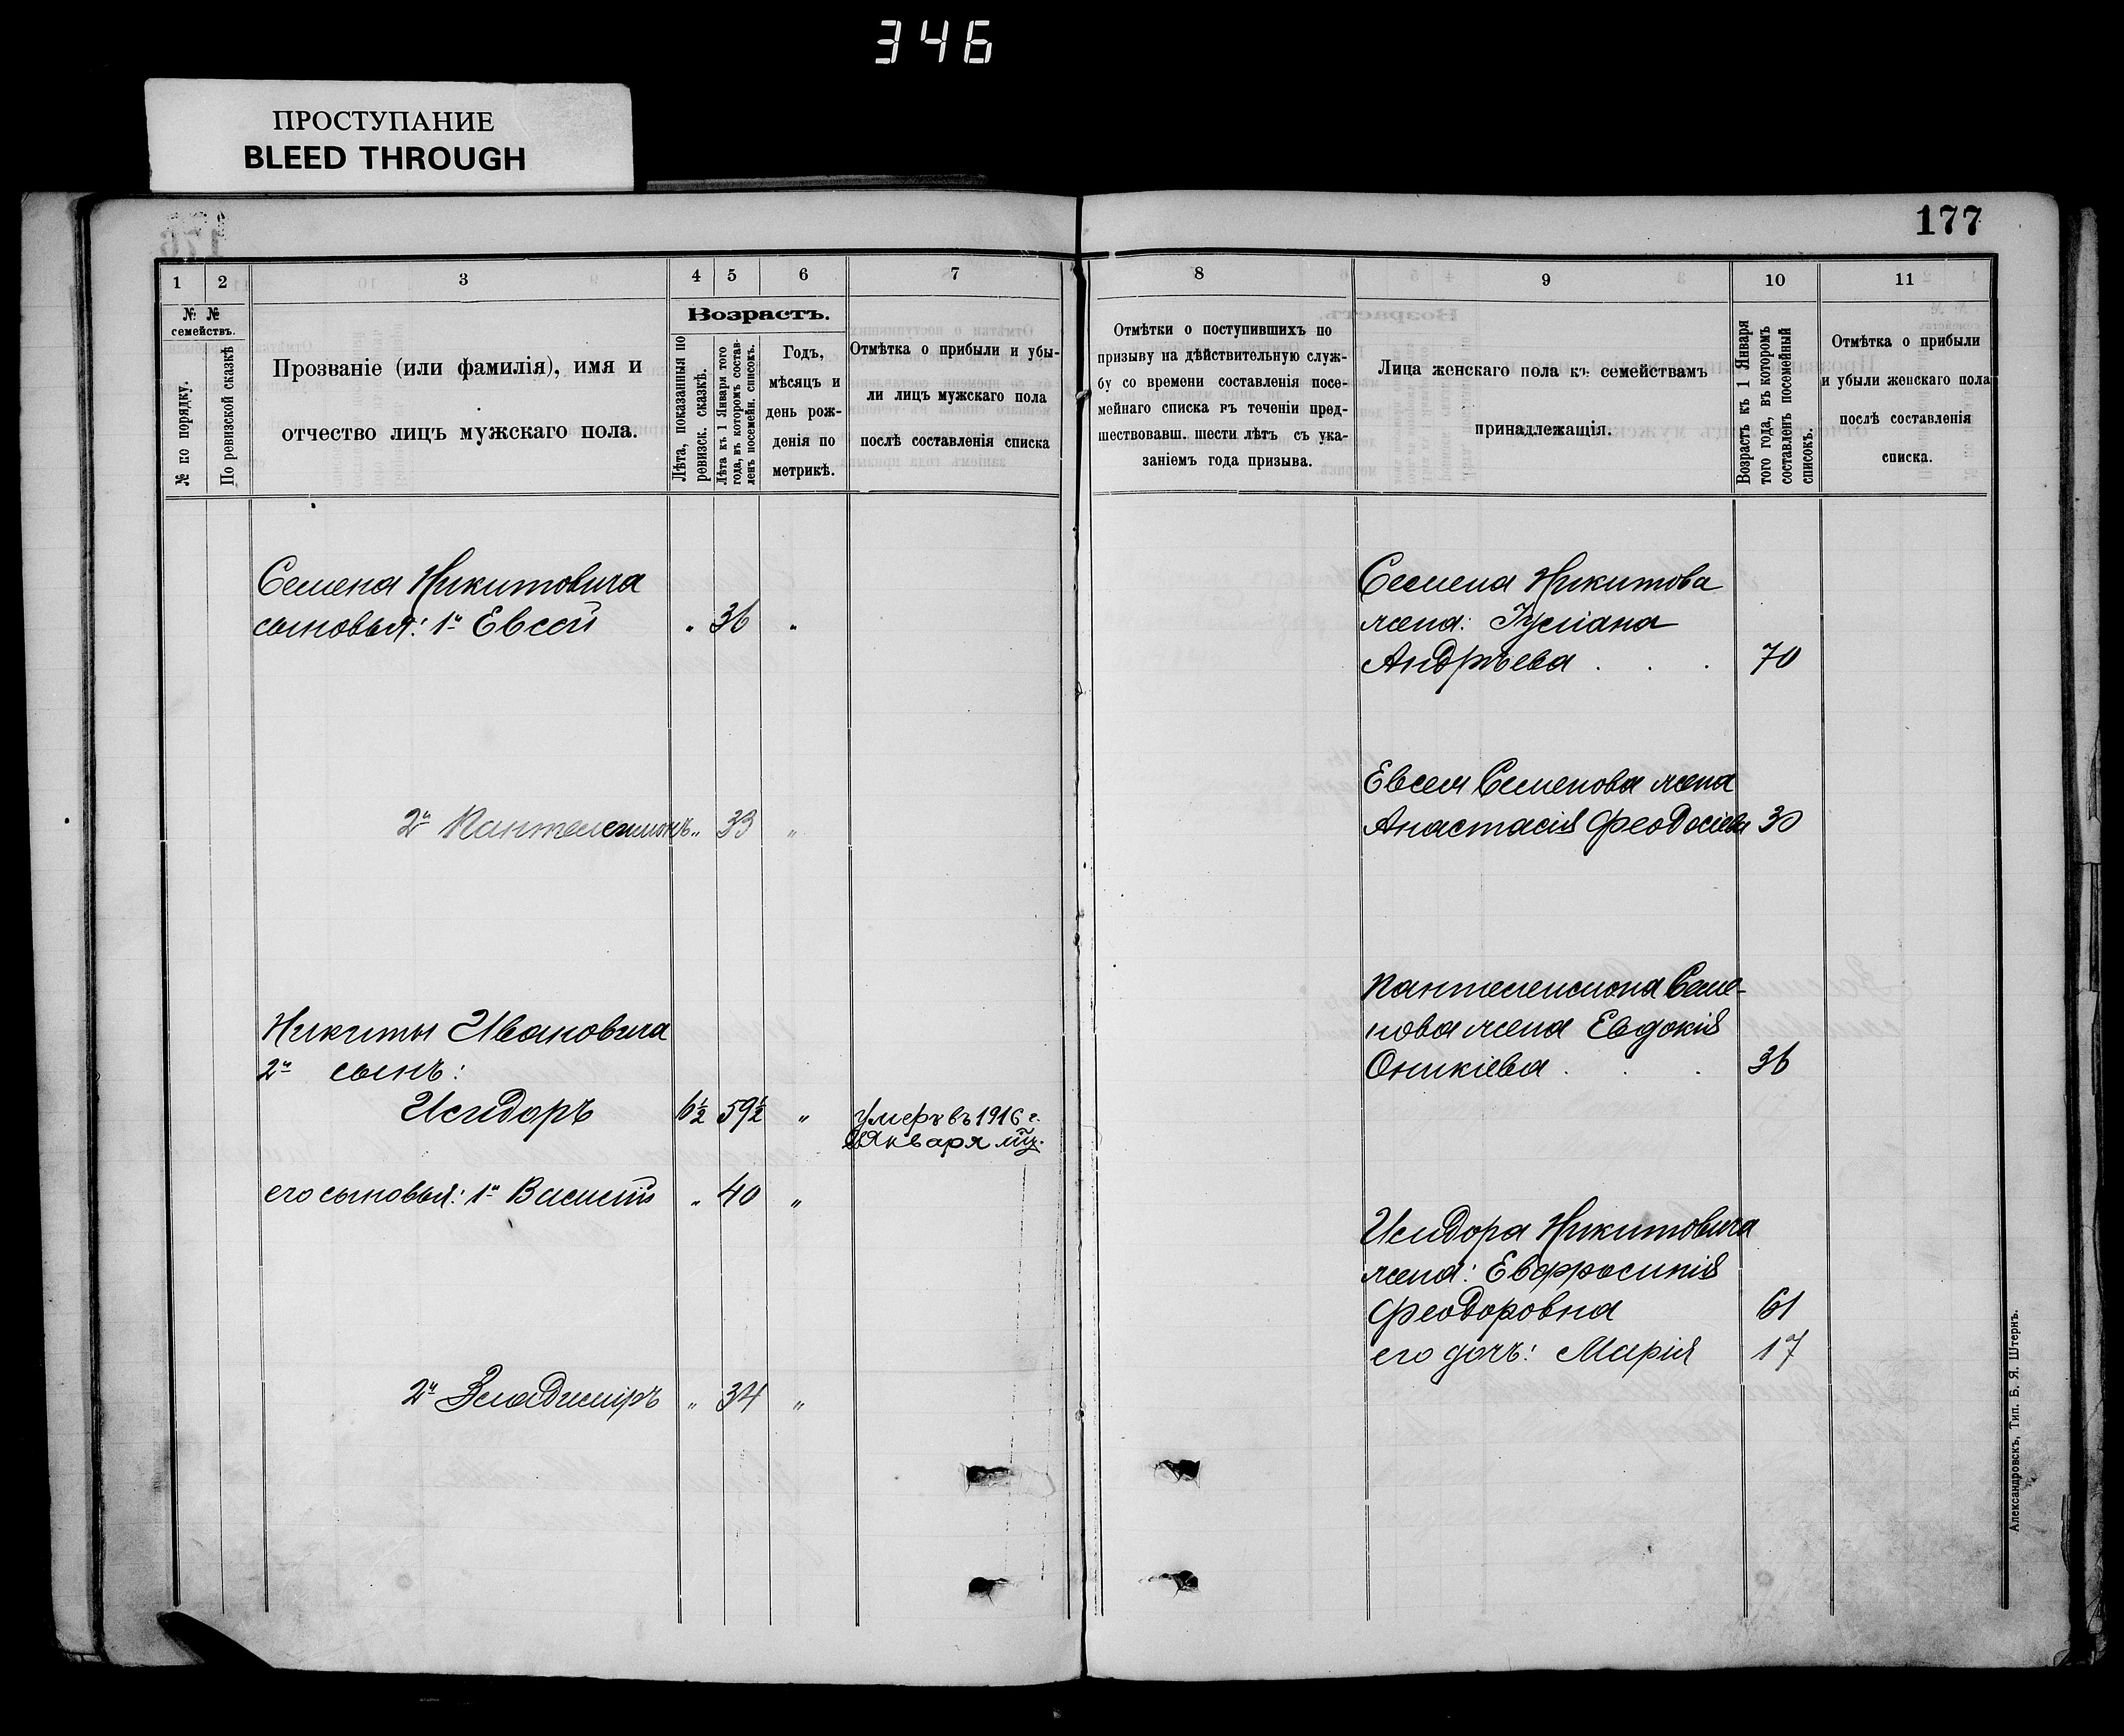 346
ПРОСТУПАНИЕ
BLEED THROUGH
177
1 2 3 4 5 6 7
№ №
семействъ.
№ по порядку.
По ревизской сказкѣ
Прозваніе (или фамилія), имя и
отчество лицъ мужскаго пола.
Возрастъ.
Лѣта, показанныя по
ревизск. сказкѣ.
Лѣта къ 1 Января того
года, въ которомъ состав-
ленъ посемейн. списокъ.
Годъ,
мѣсяцъ и
день рож-
денія по
метрикѣ.
Отмѣтка о прибыли и убы-
ли лицъ мужскаго пола
послѣ составленія списка
Семена Никитовича
сыновья: 1й Евсей " 36 "
2й Пантелеимонъ " 33 "
Никиты Ивановича
2й сынъ:
Исидоръ 6½ 59½ "
Умеръ въ 1916 г.
Января мѣц.
его сыновья: 1й Василій " 40 "
2й Владиміръ " 34 "
8 9 10 11
Отмѣтки о поступившихъ по
призыву на дѣйствительную служ-
бу со времени составленія посе-
мейнаго списка въ теченіи пред-
шествовавш. шести лѣтъ съ ука-
заніемъ года призыва.
Лица женскаго пола къ семействамъ
принадлежащія.
Возрастъ къ 1 Января
того года, въ которомъ
составленъ посемейный
списокъ.
Отмѣтка о прибыли
и убыли женскаго пола
послѣ составленія
списка.
Семена Никитова
жена: Іуліана
Андрѣева . . . 70
Евсея Семенова жена
Анастасія Феодосіева 30
Пантелеимона Семе-
нова жена Евдокія
Оникіева . . . 36
Исидора Никитовича
жена: Евфросинія
Феодоровна 61
его дочь: Марія 17
Александровскъ, Тип. Б. Я. Штернъ.